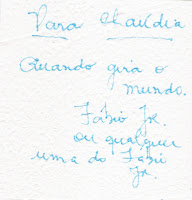 Para Claudia
Quando gira o
mundo.
Fábio Jr.
ou qualquer
uma do Fábi
Jr.